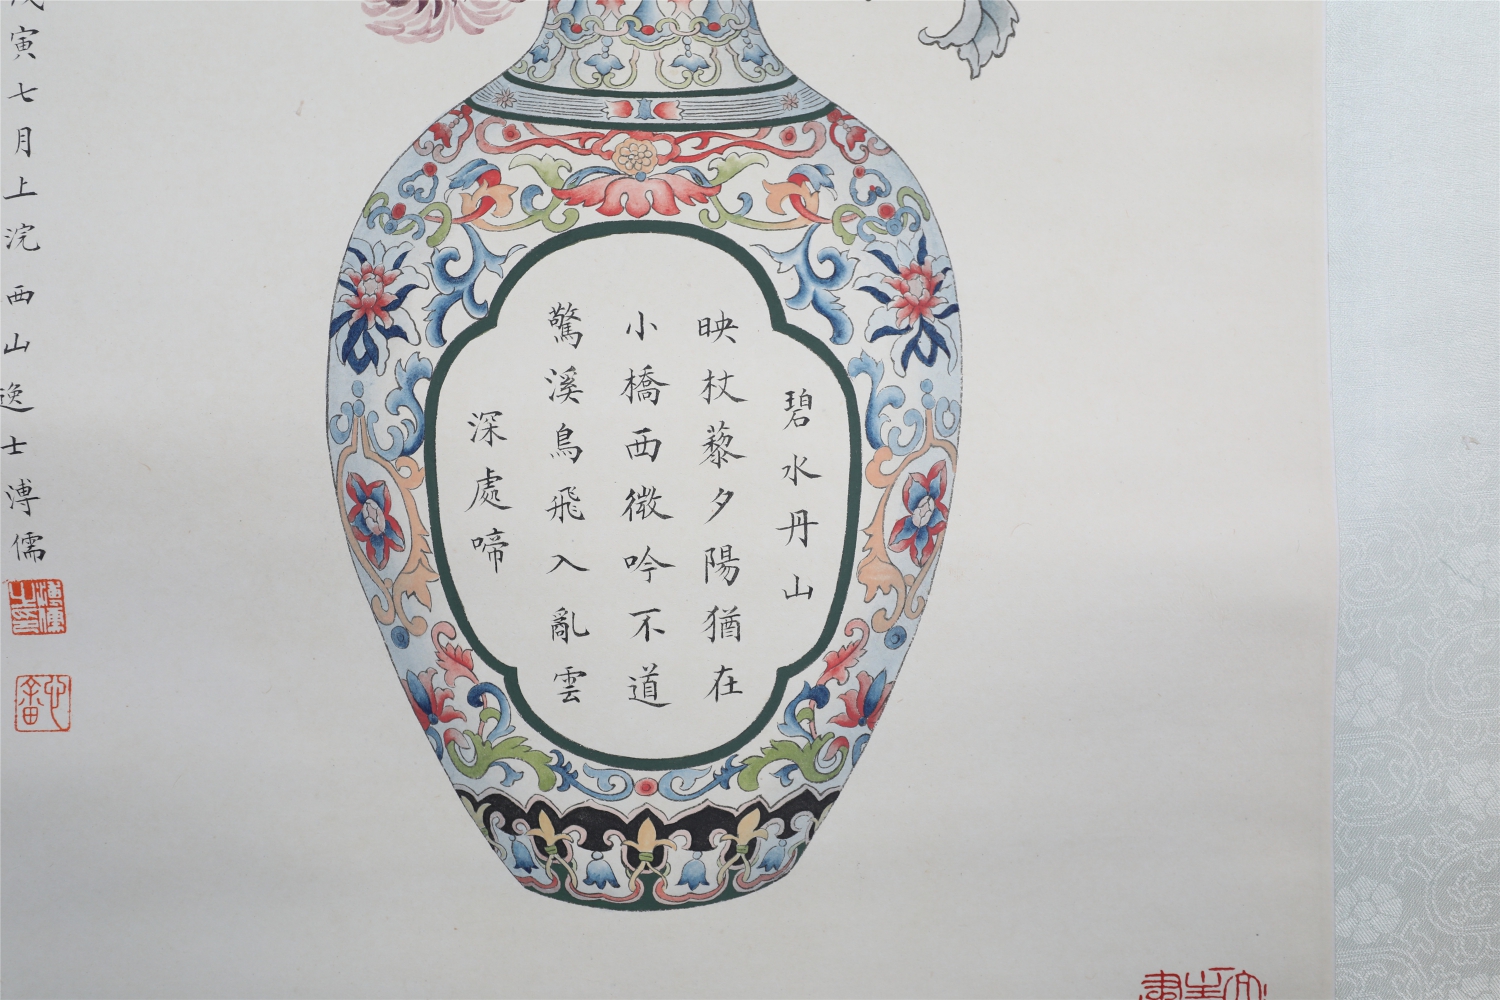 碧水丹山
映杖藜夕陽猶在
小橋西微吟不道
驚溪鳥飛入亂雲
深處啼
寅七月上浣西山逸士溥儒
溥儒之印